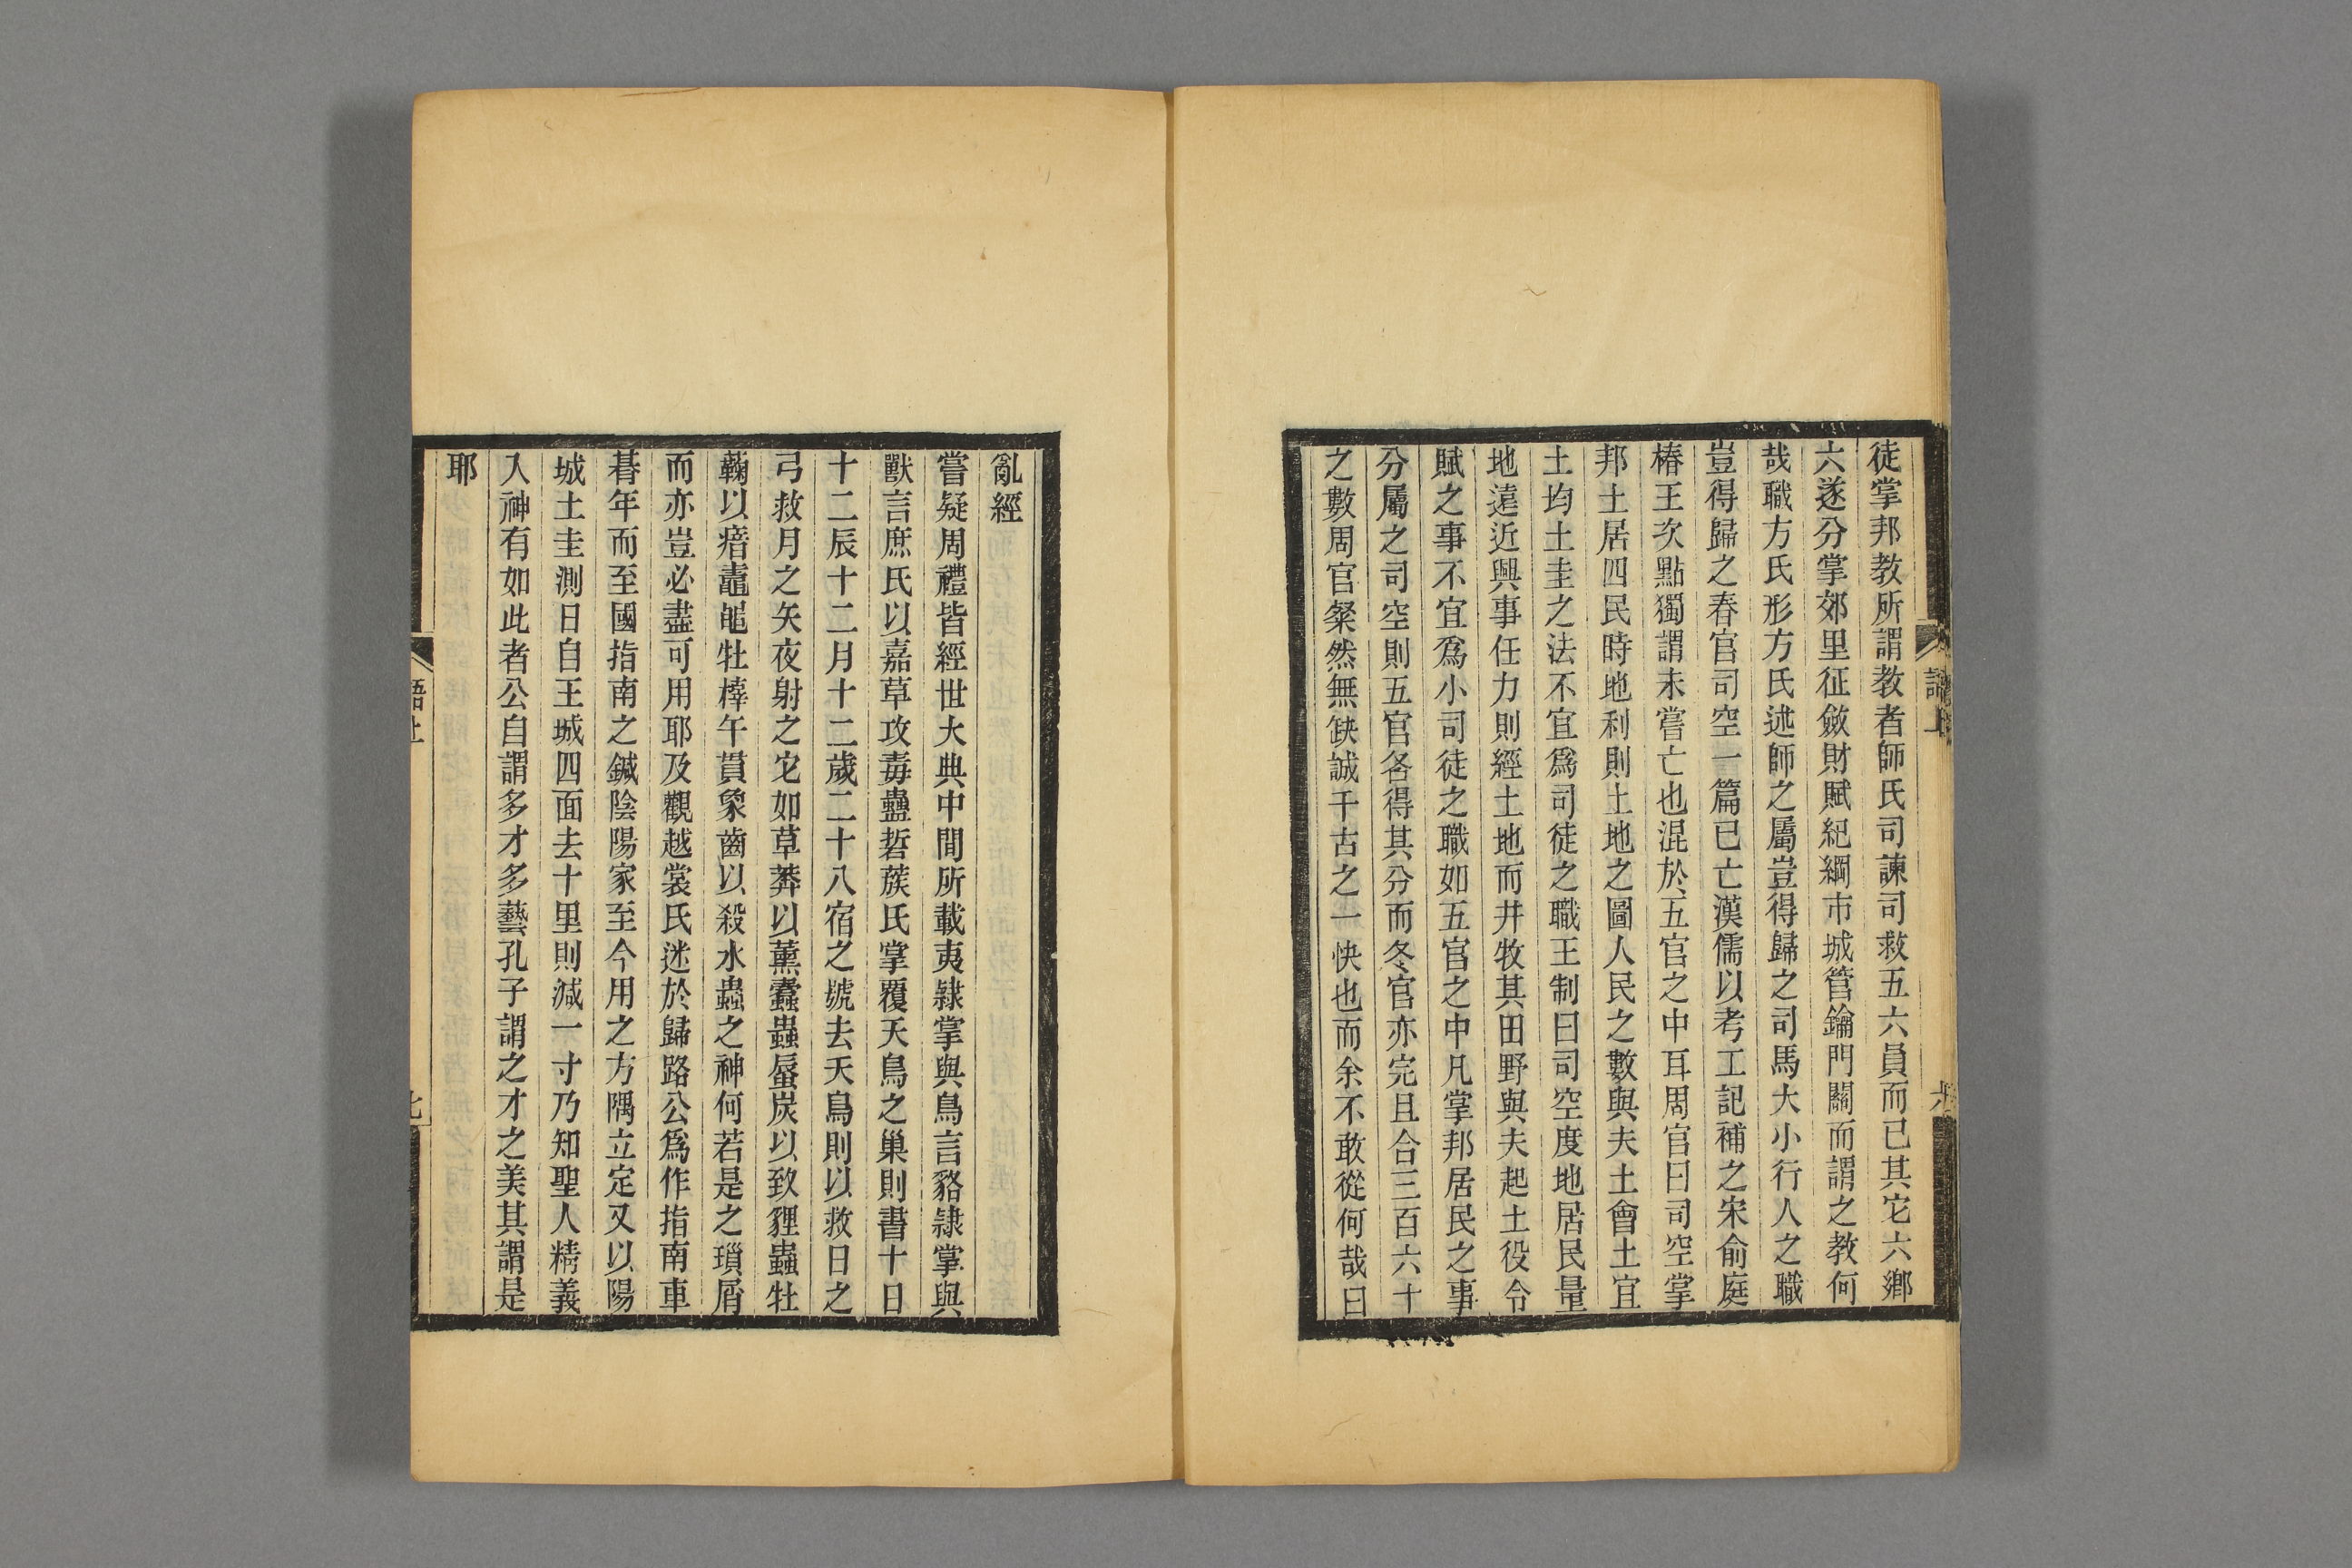 徒掌邦教所謂教者師氏司諫司救五六員而已其它六鄉
六遂分掌郊里征斂財賦紀綱市城管鑰門關而謂之教何
哉職方氏形方氏述師之屬豈得歸之司馬大小行人之職
豈得歸之春官司空一篇已亡漢儒以考工記補之宋俞庭
椿王次點獨謂未嘗亡也混於五官之中耳周官曰司空掌
邦土居四民時地利則土地之圖人民之數與夫土會土宜
土均土圭之法不宜爲司徒之職王制曰司空度地居民量
地遠近興事任力則經土地而井牧其田野與夫起土役令
賦之事不宜爲小司徒之職如五官之中凡掌邦居民之事
分屬之司空則五官各得其分而冬官亦完且合三百六十
之數周官粲然無缺誠千古之一快也而余不敢從何哉曰
語上
六
亂經
嘗疑周禮皆經世大典中間所載夷隸掌與鳥言貉隸掌與
獸言庶氏以嘉草攻毒蠱硩蔟氏掌覆夭鳥之巢則書十日
十二辰十二月十二歲二十八宿之號去夭鳥則以救日之
弓救月之矢夜射之它如草莽以薰蠹蟲蜃炭以致貍蟲牡
蘜以瘖鼃黽牡橭午貫象齒以殺水蟲之神何若是之瑣屑
而亦豈必盡可用耶及觀越裳氏迷於歸路公爲作指南車
朞年而至國指南之鍼陰陽家至今用之方隅立定又以陽
城土圭測日自王城四面去十里則減一寸乃知聖人精義
入神有如此者公自謂多才多藝孔子謂之才之美其謂是
耶
語上
七